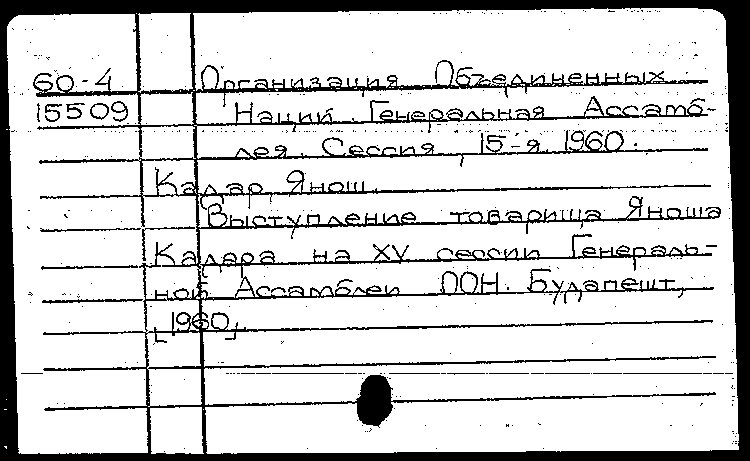 60-4 Организация Объединенных
15509 Наций. Генеральная Ассамб-
лея. Сессия, 15-я. 1960.
Кадар, Янош.
Выступление товарища Яноша
Кадара на XV сессии Генераль-
ной Ассамблеи ООН. Будапешт,
[1960].